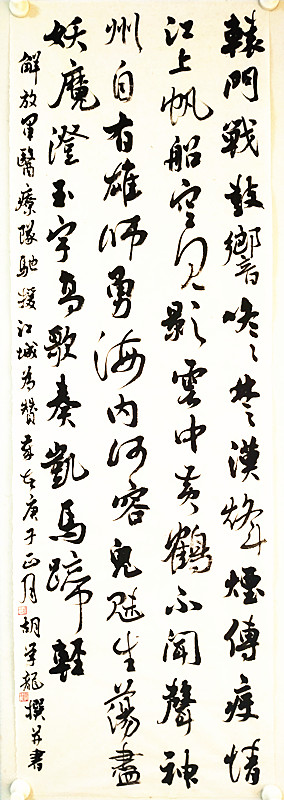 轅門戰鼓響咚咚楚漢烽煙傳疫情
江上帆船空見影雲中黃鶴不聞聲神
州自有雄师勇海内何容鬼魅生蕩盡
妖魔澄玉宇高歌奏凱馬蹄輕
解放軍醫療隊馳援江城為贊 歲在庚子正月 胡学龍撰并書